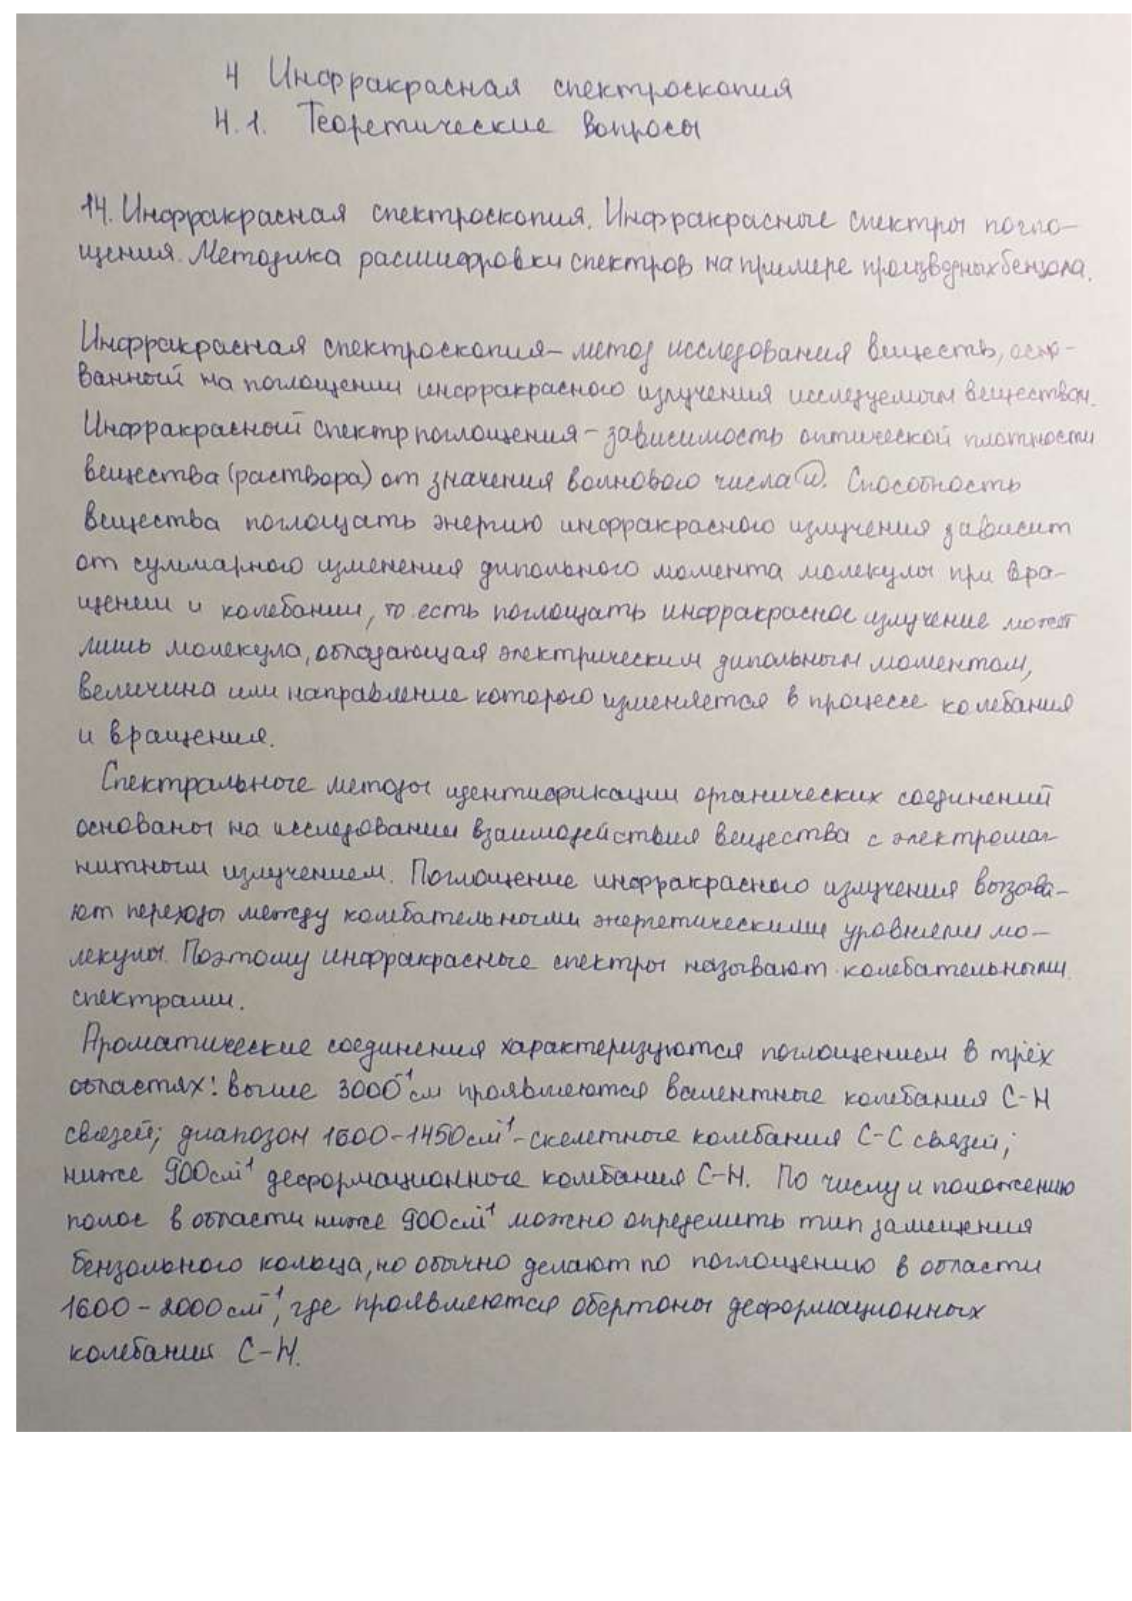 4 Инфракрасная спектроскопия
4.1. Теоретические вопросы
14. Инфракрасная спектроскопия. Инфракрасные спектры погло-
щения. Методика расшифровки спектров на примере производных бензола.
Инфракрасная спектроскопия – метод исследования веществ, осно-
ванный на поглощении инфракрасного излучения исследуемым веществом.
Инфракрасный спектр поглощения – зависимость оптической плотности
вещества (раствора) от значения волнового числа (ω). Способность
вещества поглощать энергию инфракрасного излучения зависит
от суммарного изменения дипольного момента молекулы при вра-
щении и колебании, то есть поглощать инфракрасное излучение может
лишь молекула, обладающая электрическим дипольным моментом,
величина или направление которого изменяется в процессе колебания
и вращения.
Спектральные методы идентификации органических соединений
основаны на исследовании взаимодействия вещества с электромаг-
нитным излучением. Поглощение инфракрасного излучения вызыва-
ют переходы между колебательными энергетическими уровнями мо-
лекулы. Поэтому инфракрасные спектры называют колебательными
спектрами.
Ароматические соединения характеризуются поглощением в трёх
областях: выше 3000⁻¹см проявляются валентные колебания C-H
связей; диапозон 1600-1450см⁻¹ - скелетные колебания C-C связей;
ниже 900см⁻¹ деформационные колебания C-H. По числу и положению
полос в области ниже 900см⁻¹ можно определить тип замещения
бензольного кольца, но обычно делают по поглощению в области
1600-2000см⁻¹, где проявляются обертоны деформационных
колебаний C-H.